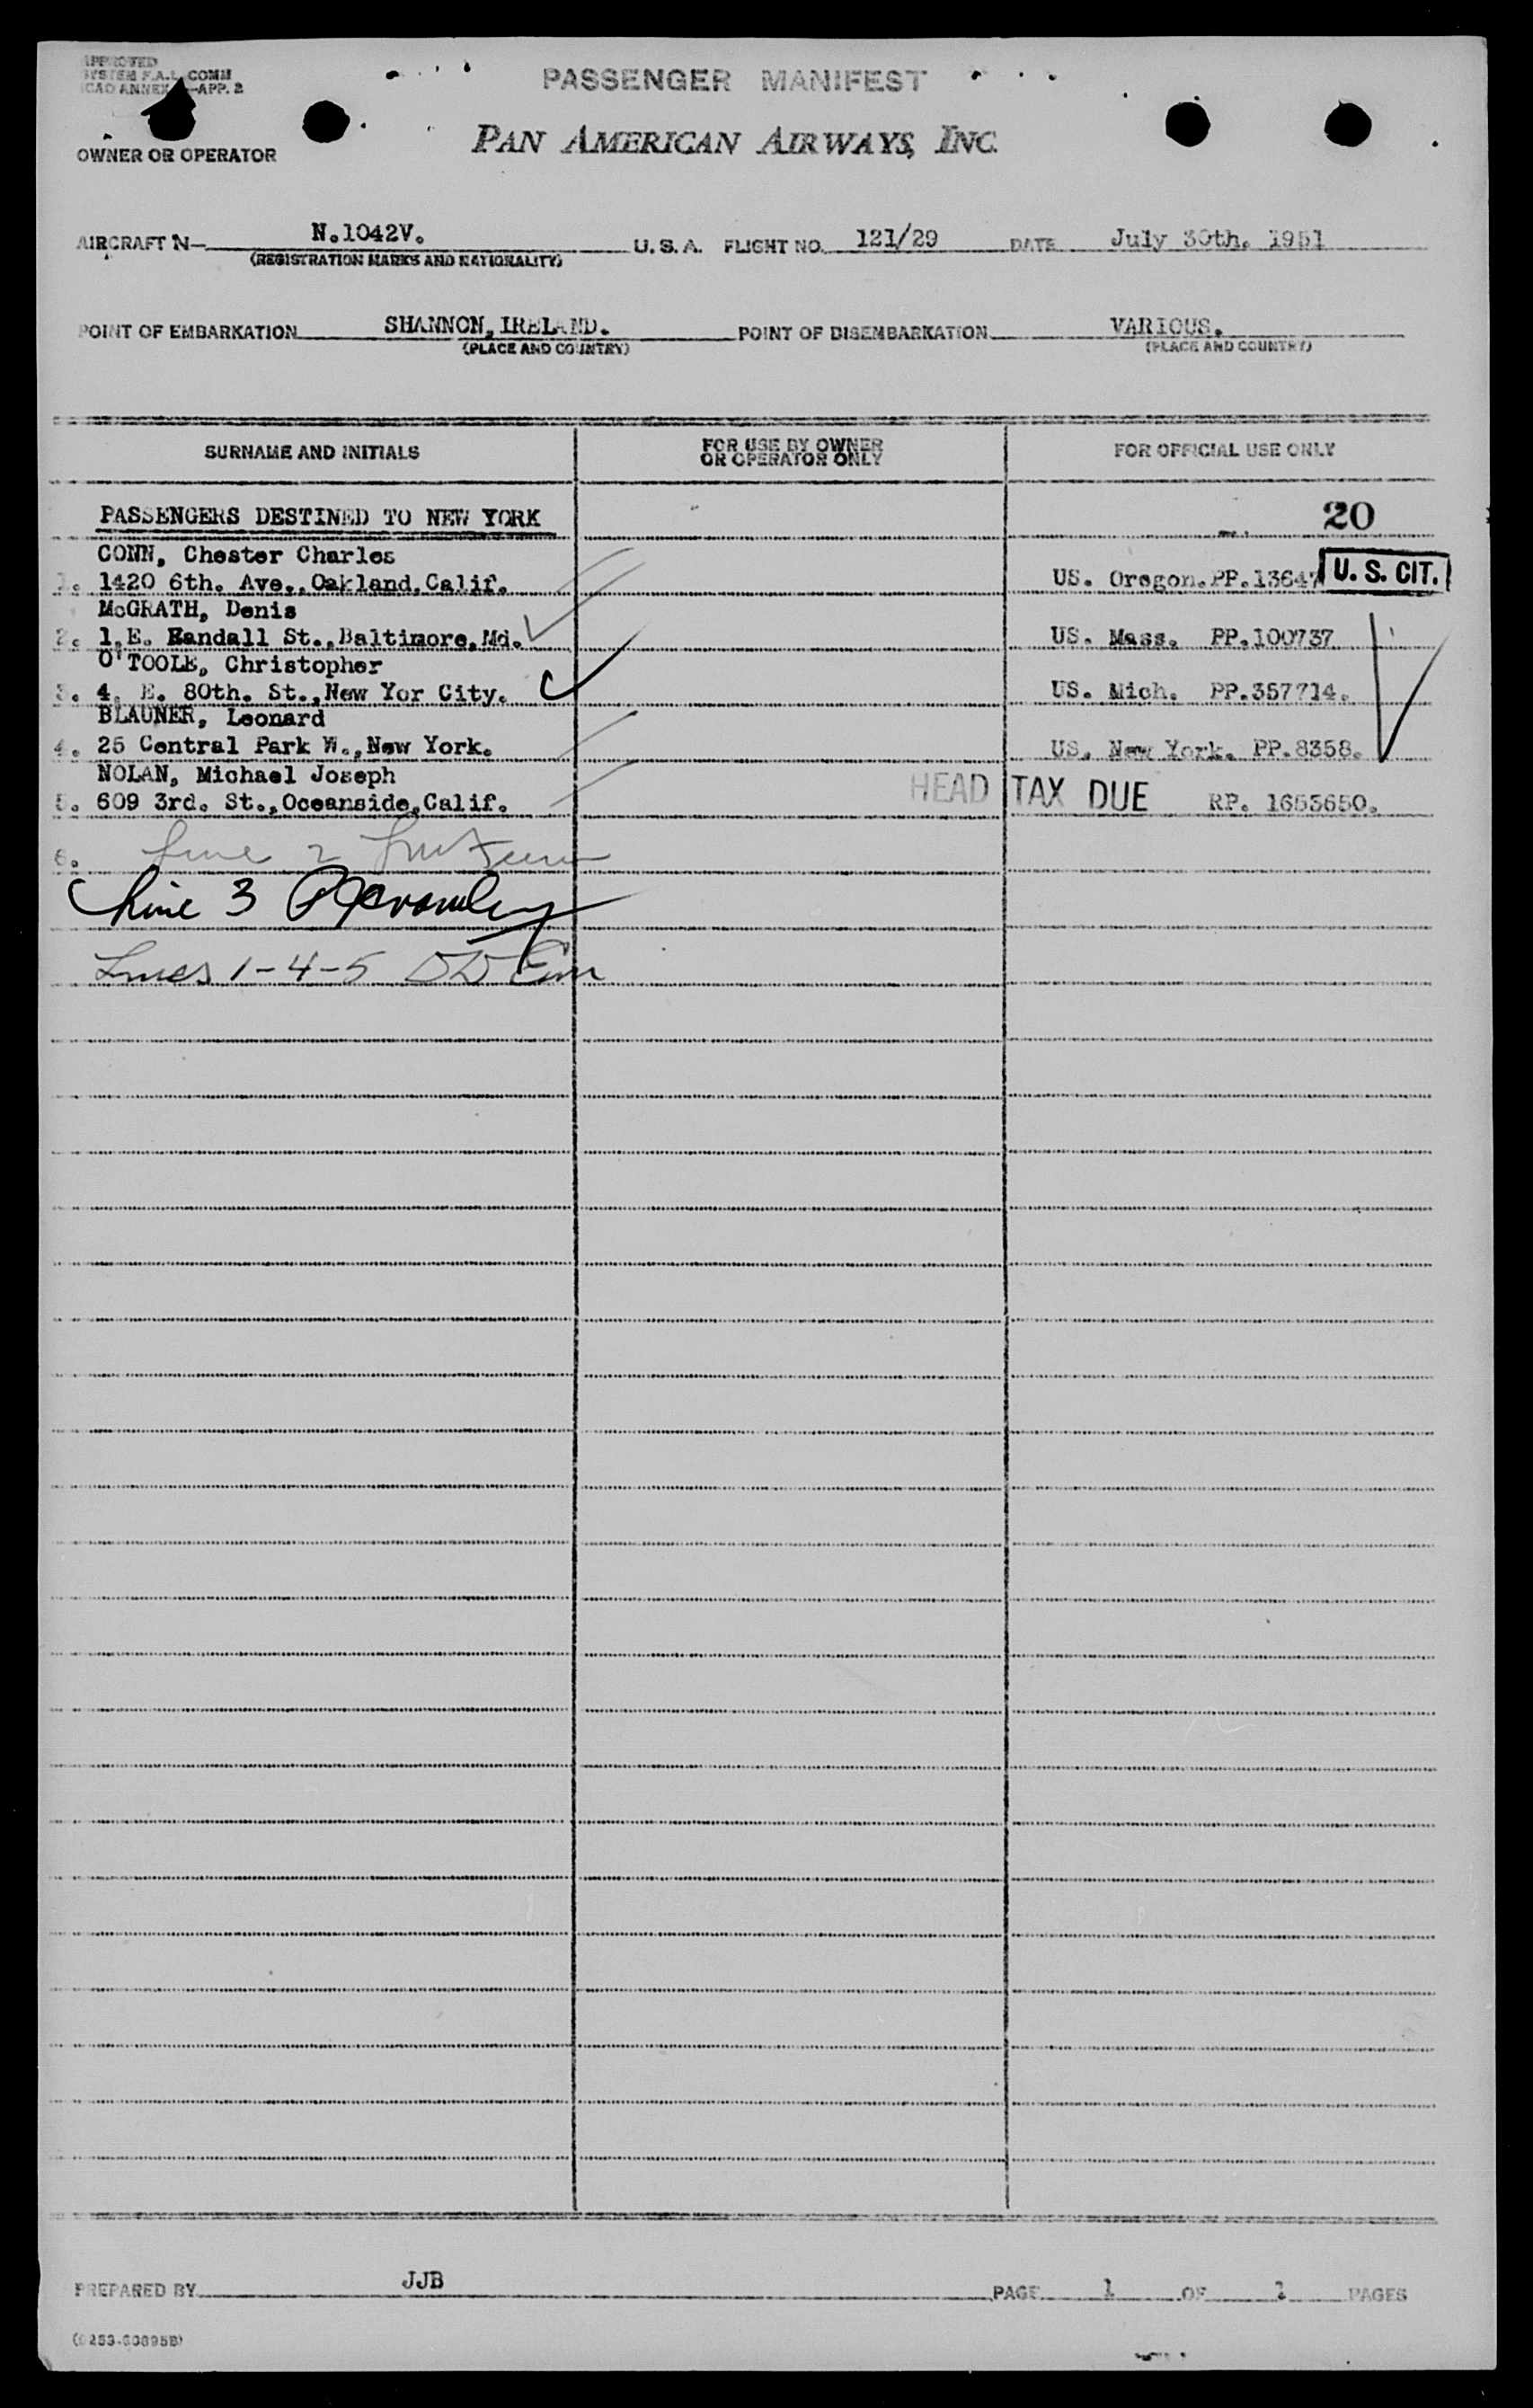 APPROVED
SYSTEM F.A.L. COMM
ICAO ANNEX -APP. 2
PASSENGER MANIFEST
PAN AMERICAN AIRWAYS, INC.
OWNER OR OPERATOR
AIRCRAFT N- N.1042V. U.S.A. FLIGHT NO. 121/29 DATE July 30th. 1951
(REGISTRATION MARKS AND NATIONALITY)
POINT OF EMBARKATION SHANNON, IRELAND. POINT OF DISEMBARKATION VARIOUS.
(PLACE AND COUNTRY) (PLACE AND COUNTRY)
SURNAME AND INITIALS FOR USE BY OWNER OR OPERATOR ONLY FOR OFFICIAL USE ONLY
PASSENGERS DESTINED TO NEW YORK 20
CONN, Chester Charles
1. 1420 6th. Ave., Oakland, Calif. US. Oregon. PP. 13647 U. S. CIT.
McGRATH, Denis
2. 1, E. Randall St., Baltimore, Md. US. Mass. PP. 100737
O'TOOLE, Christopher
3. 4, E. 80th. St., New Yor City. US. Mich. PP. 357714.
BLAUNER, Leonard
4. 25 Central Park W., New York. US. New York. PP. 8358.
NOLAN, Michael Joseph
5. 609 3rd. St., Oceanside, Calif. HEAD TAX DUE RP. 1653650.
6. Line 2
Line 3
Lines 1-4-5
PREPARED BY JJB PAGE 1 OF 1 PAGES